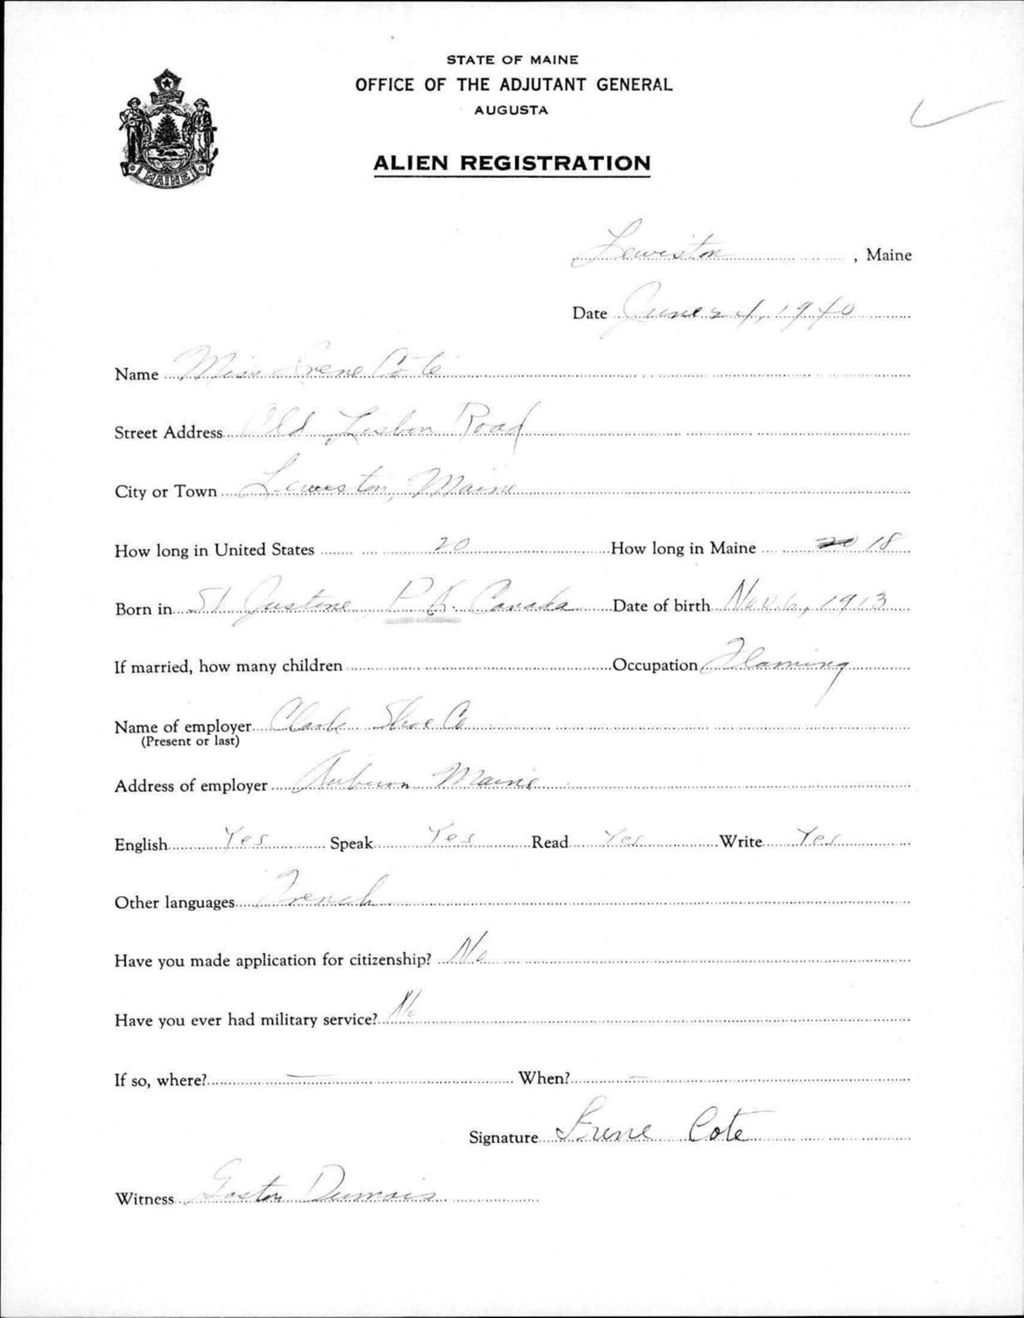 STATE OF MAINE
OFFICE OF THE ADJUTANT GENERAL
AUGUSTA
ALIEN REGISTRATION
MAINE
Lewiston, Maine
Date June 24, 1940
Name Miss Irene Cote
Street Address Old Lisbon Road
City or Town Lewiston, Maine
How long in United States 20 How long in Maine 20 18
Born in St Justine P.Q. Canada Date of birth Nov. 6, 1913
If married, how many children Occupation
Name of employer Clark Shoe Co
(Present or last)
Address of employer Auburn Maine
English Yes Speak Yes Read Yes Write Yes
Other languages French
Have you made application for citizenship? No
Have you ever had military service? No
If so, where? — When? —
Signature Irene Cote
Witness Gaston Dumais